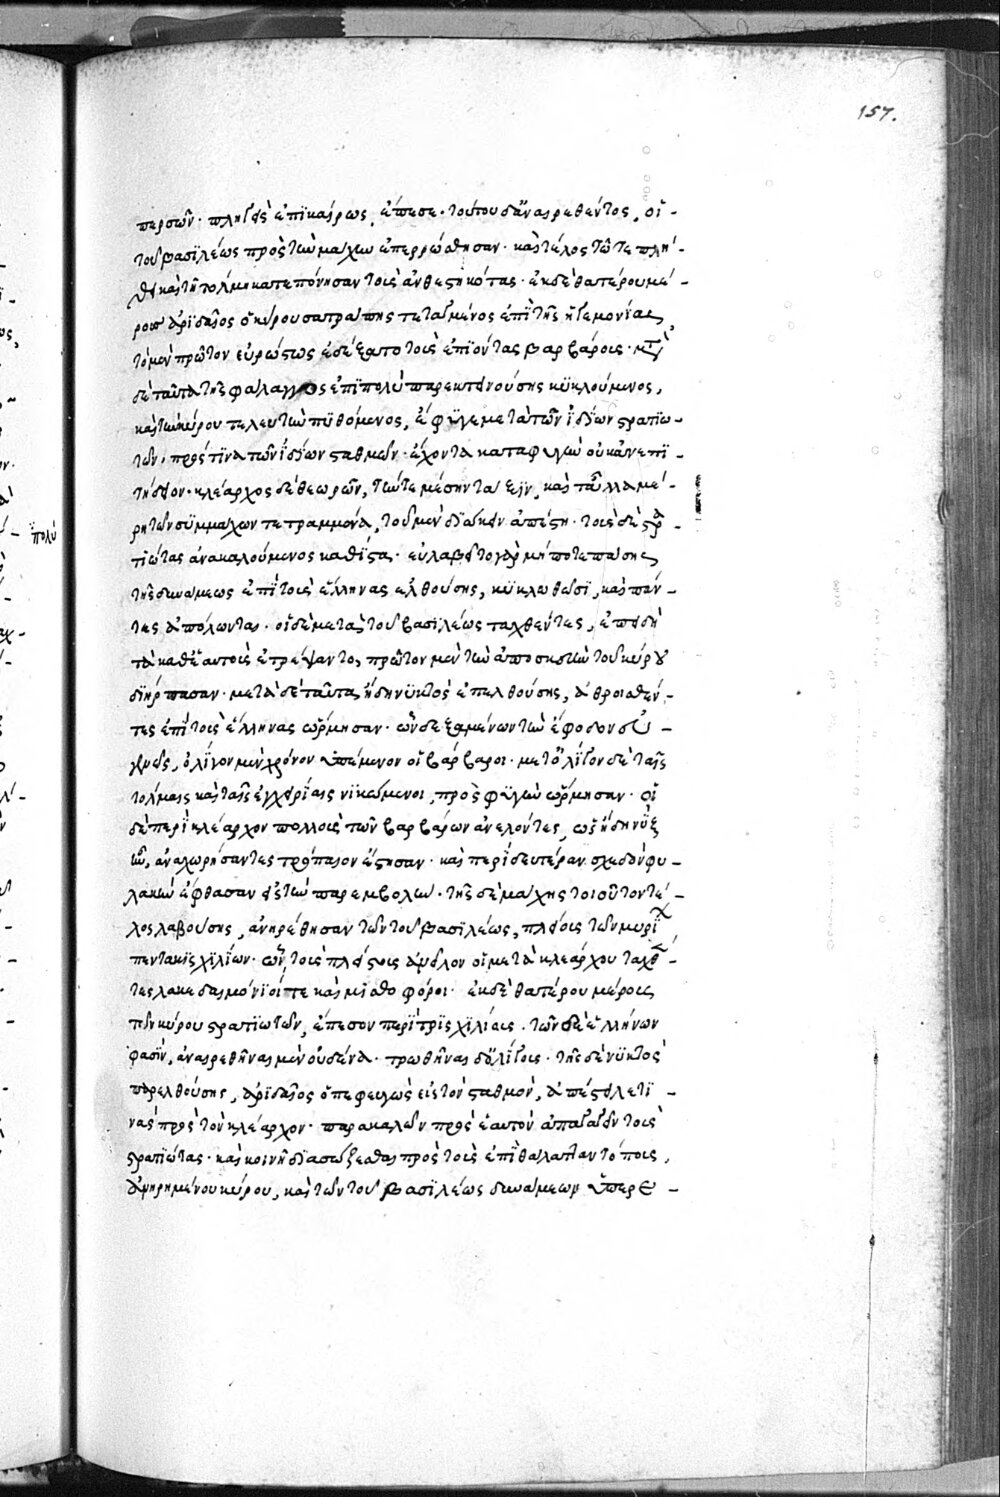 157.
περσῶν· πληγεὶς ἐπικαίρως, ἔπεσε· τούτου δ' ἀναιρεθέντος, οἱ
τοῦ βασιλέως πρὸς τὴν μάχην ἐπερρώσθησαν· καὶ τέλος τῶ τε πλή-
θει καὶ τῆ τόλμη κατεπόνησαν τοὺς ἀνθεστηκότας· ἐκ δὲ θατέρου μέ-
ρους ἀριδαῖος ὁ κύρου σατράπης τεταγμένος ἐπὶ τῆς ἡγεμονίας,
τὸ μὲν πρῶτον εὐρώστως ἐδέξατο τοὺς ἐπιόντας βαρβάρους· μετὰ
δὲ ταῦτα τῆς φάλαγγος ἐπιπολὺ παρεκτεινούσης κυκλούμενος,
καὶ τὴν κύρου τελευτὴν πυθόμενος, ἔφυγε μετὰ τῶν ἰδίων στρατιω-
τῶν, πρός τινα τῶν ἰδίων σταθμῶν· ἔχοντα καταφυγὴν οὐκ ἀνεπι-
τήδειον· κλέαρχος δὲ θεωρῶν, τήν τε μέσην τάξιν, καὶ τἆλλα μέ-
ρη τῶν συμμάχων τετραμμένα, τοῦ μὲν διώκειν ἀπέστη· τοὺς δὲ στρα-
τιώτας ἀνακαλούμενος καθίστα· εὐλαβεῖτο γὰρ μήποτε πάσης
τῆς δυνάμεως ἐπὶ τοὺς ἕλληνας ἐλθούσης, κυκλωθῶσι, καὶ πάν-
τες ἀπόλωνται· οἱ δὲ μετὰ τοῦ βασιλέως ταχθέντες, ἐπειδὴ
τὰ καθ' ἑαυτοὺς ἐτρέψαντο, πρῶτον μὲν τὴν ἀποσκευὴν τοῦ κύρου
διήρπασαν· μετὰ δὲ ταῦτα, ἤδη νυκτὸς ἐπελθούσης, ἀθροισθέν-
τες ἐπὶ τοὺς ἕλληνας ὥρμησαν· ὧν δεξαμένων τὴν ἔφοδον εὐ-
γενῶς, ὀλίγον μὲν χρόνον ὑπέμενον οἱ βάρβαροι· μετ' ὀλίγον δὲ ταῖς
τόλμαις καὶ ταῖς εὐχειρίαις νικώμενοι, πρὸς φυγὴν ὥρμησαν· οἱ
δὲ περὶ κλέαρχον πολλοὺς τῶν βαρβάρων ἀνελόντες, ὡς ἤδη νὺξ
ἦν, ἀναχωρήσαντες τρόπαιον ἔστησαν· καὶ περὶ δευτέραν σχεδὸν φυ-
λακὴν ἔφθασαν εἰς τὴν παρεμβολήν· τῆς δὲ μάχης τοιοῦτον τέ-
λος λαβούσης, ἀνηρέθησαν τῶν τοῦ βασιλέως, πλείους τῶν μυρίων
πεντακισχιλίων· ὧν τοὺς πλείστους ἀνεῖλον οἱ μετὰ κλεάρχου ταχθέν-
τες λακεδαιμόνιοί τε καὶ μισθοφόροι· ἐκ δὲ θατέρου μέρους
τῶν κύρου στρατιωτῶν, ἔπεσον περὶ τρισχιλίους· τῶν δὲ ἑλλήνων
φασὶν, ἀναιρεθῆναι μὲν οὐδένα· τρωθῆναι δ' ὀλίγους· τῆς δὲ νυκτὸς
παρελθούσης, ἀριδαῖος ὁ πεφευγὼς εἰς τὸν σταθμὸν, ἀπέστειλέ τι-
νας πρὸς τὸν κλέαρχον· παρακαλῶν πρὸς ἑαυτὸν ἀπαγαγεῖν τοὺς
στρατιώτας· καὶ κοινῆ διασώζεσθαι πρὸς τοὺς ἐπὶ θάλατταν τόπους,
ἀνηρημένου κύρου, καὶ τῶν τοῦ βασιλέως δυνάμεων ὑπερε-
πολύ